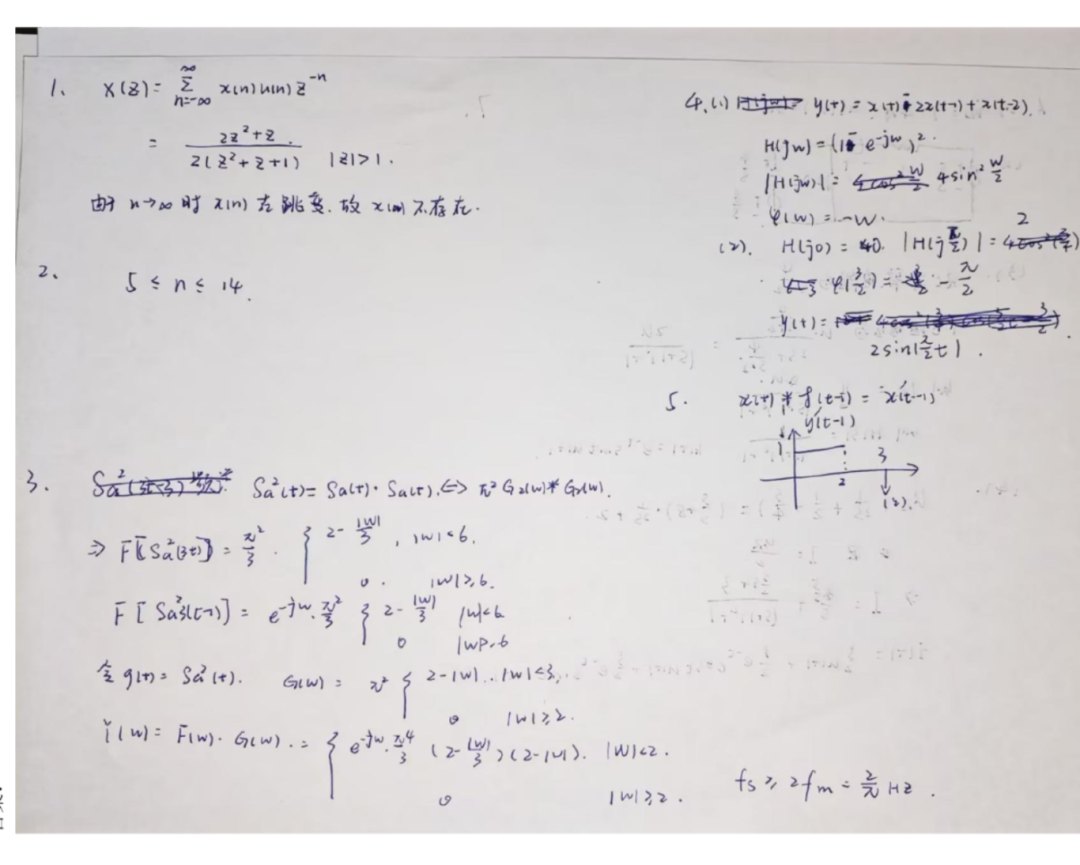 1. X(z) = Σ_{n=-∞}^{∞} x(n)u(n)z^{-n}
= (2z²+z) / (2(z²+z+1)) |z|>1.
由于 n→∞ 时 x(n) 在跳变, 故 x(∞) 不存在.
2. 5 ≤ n ≤ 14.
3. Sa²(t) = Sa(t)·Sa(t). ⇔ π² G₂(w) * G₂(w).
⇒ F[Sa²(3t)] = π²/3 · { 2 - |w|/3 , |w|<6.
0. |w|≥6.
F[Sa²3(t-1)] = e^{-jw}·π²/3 { 2 - |w|/3 |w|<6
0 |w|≥6
令 g(t) = Sa²(t). G(w) = π² { 2-|w|. |w|<3,
0 |w|≥2.
Y(w) = F(w)·G(w). = { e^{-jw}·π⁴/3 (2-|w|/3)(2-|w|). |w|<2.
0 |w|≥2.
fs ≥ 2fm = 2/π Hz.
4.(1) y(t) = x(t) - 2x(t-1) + x(t-2).
H(jw) = (1 - e^{-jw})².
|H(jw)| = 4sin² w/2
φ(w) = -w.
(2). H(j0) = 0. |H(jπ/2)| = 2
= -π/2
y(t) =
2sin(π/2 t).
5. x(t) * δ(t-1) = x(t-1)
y'(t-1)
1
2
3
(2).